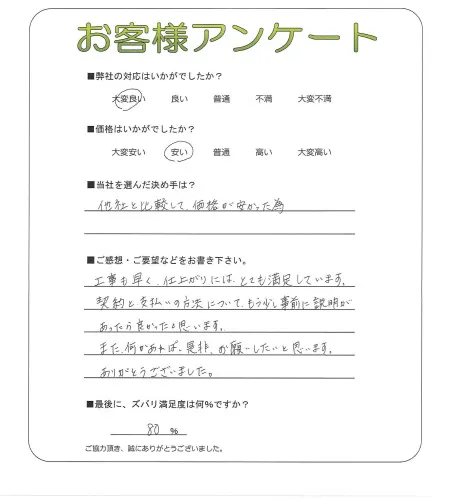 お客様アンケート
■弊社の対応はいかがでしたか？
大変良い 良い 普通 不満 大変不満
■価格はいかがでしたか？
大変安い 安い 普通 高い 大変高い
■当社を選んだ決め手は？
他社と比較して、価格が安かった為
■ご感想・ご要望などをお書き下さい。
工事も早く、仕上がりには、とても満足しています。
契約と支払いの方法について、もう少し事前に説明が
あったら良かったと思います。
また、何かあれば、是非、お願いしたいと思います。
ありがとうございました。
■最後に、ズバリ満足度は何%ですか？
80 %
ご協力頂き、誠にありがとうございました。